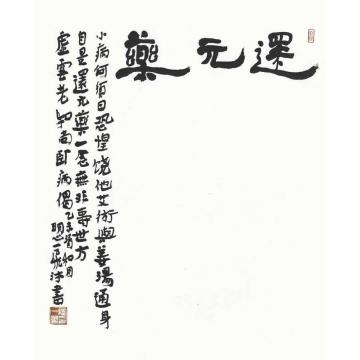 還元藥
小病何須自恐惶饒他艾術與姜湯通身
自是還元藥一屁無非壽世方
虛雲老和尚卧病偈乙未
明一
書